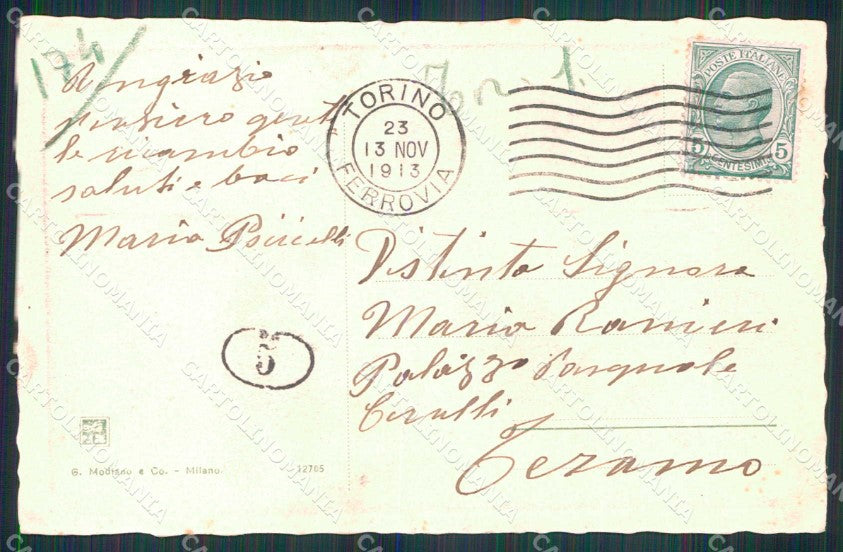 174
Ringrazio
pensiero genti
le ricambio
saluti e baci
Maria
TORINO
23
13 NOV
1913
FERROVIA
POSTE ITALIANE
5 CENTESIMI 5
Distinta Signora
Maria Ranieri
Palazzo Pasquale
Cerulli
Teramo
5
G. Modiano e Co. - Milano.
12705
CARTOLINOMANIA